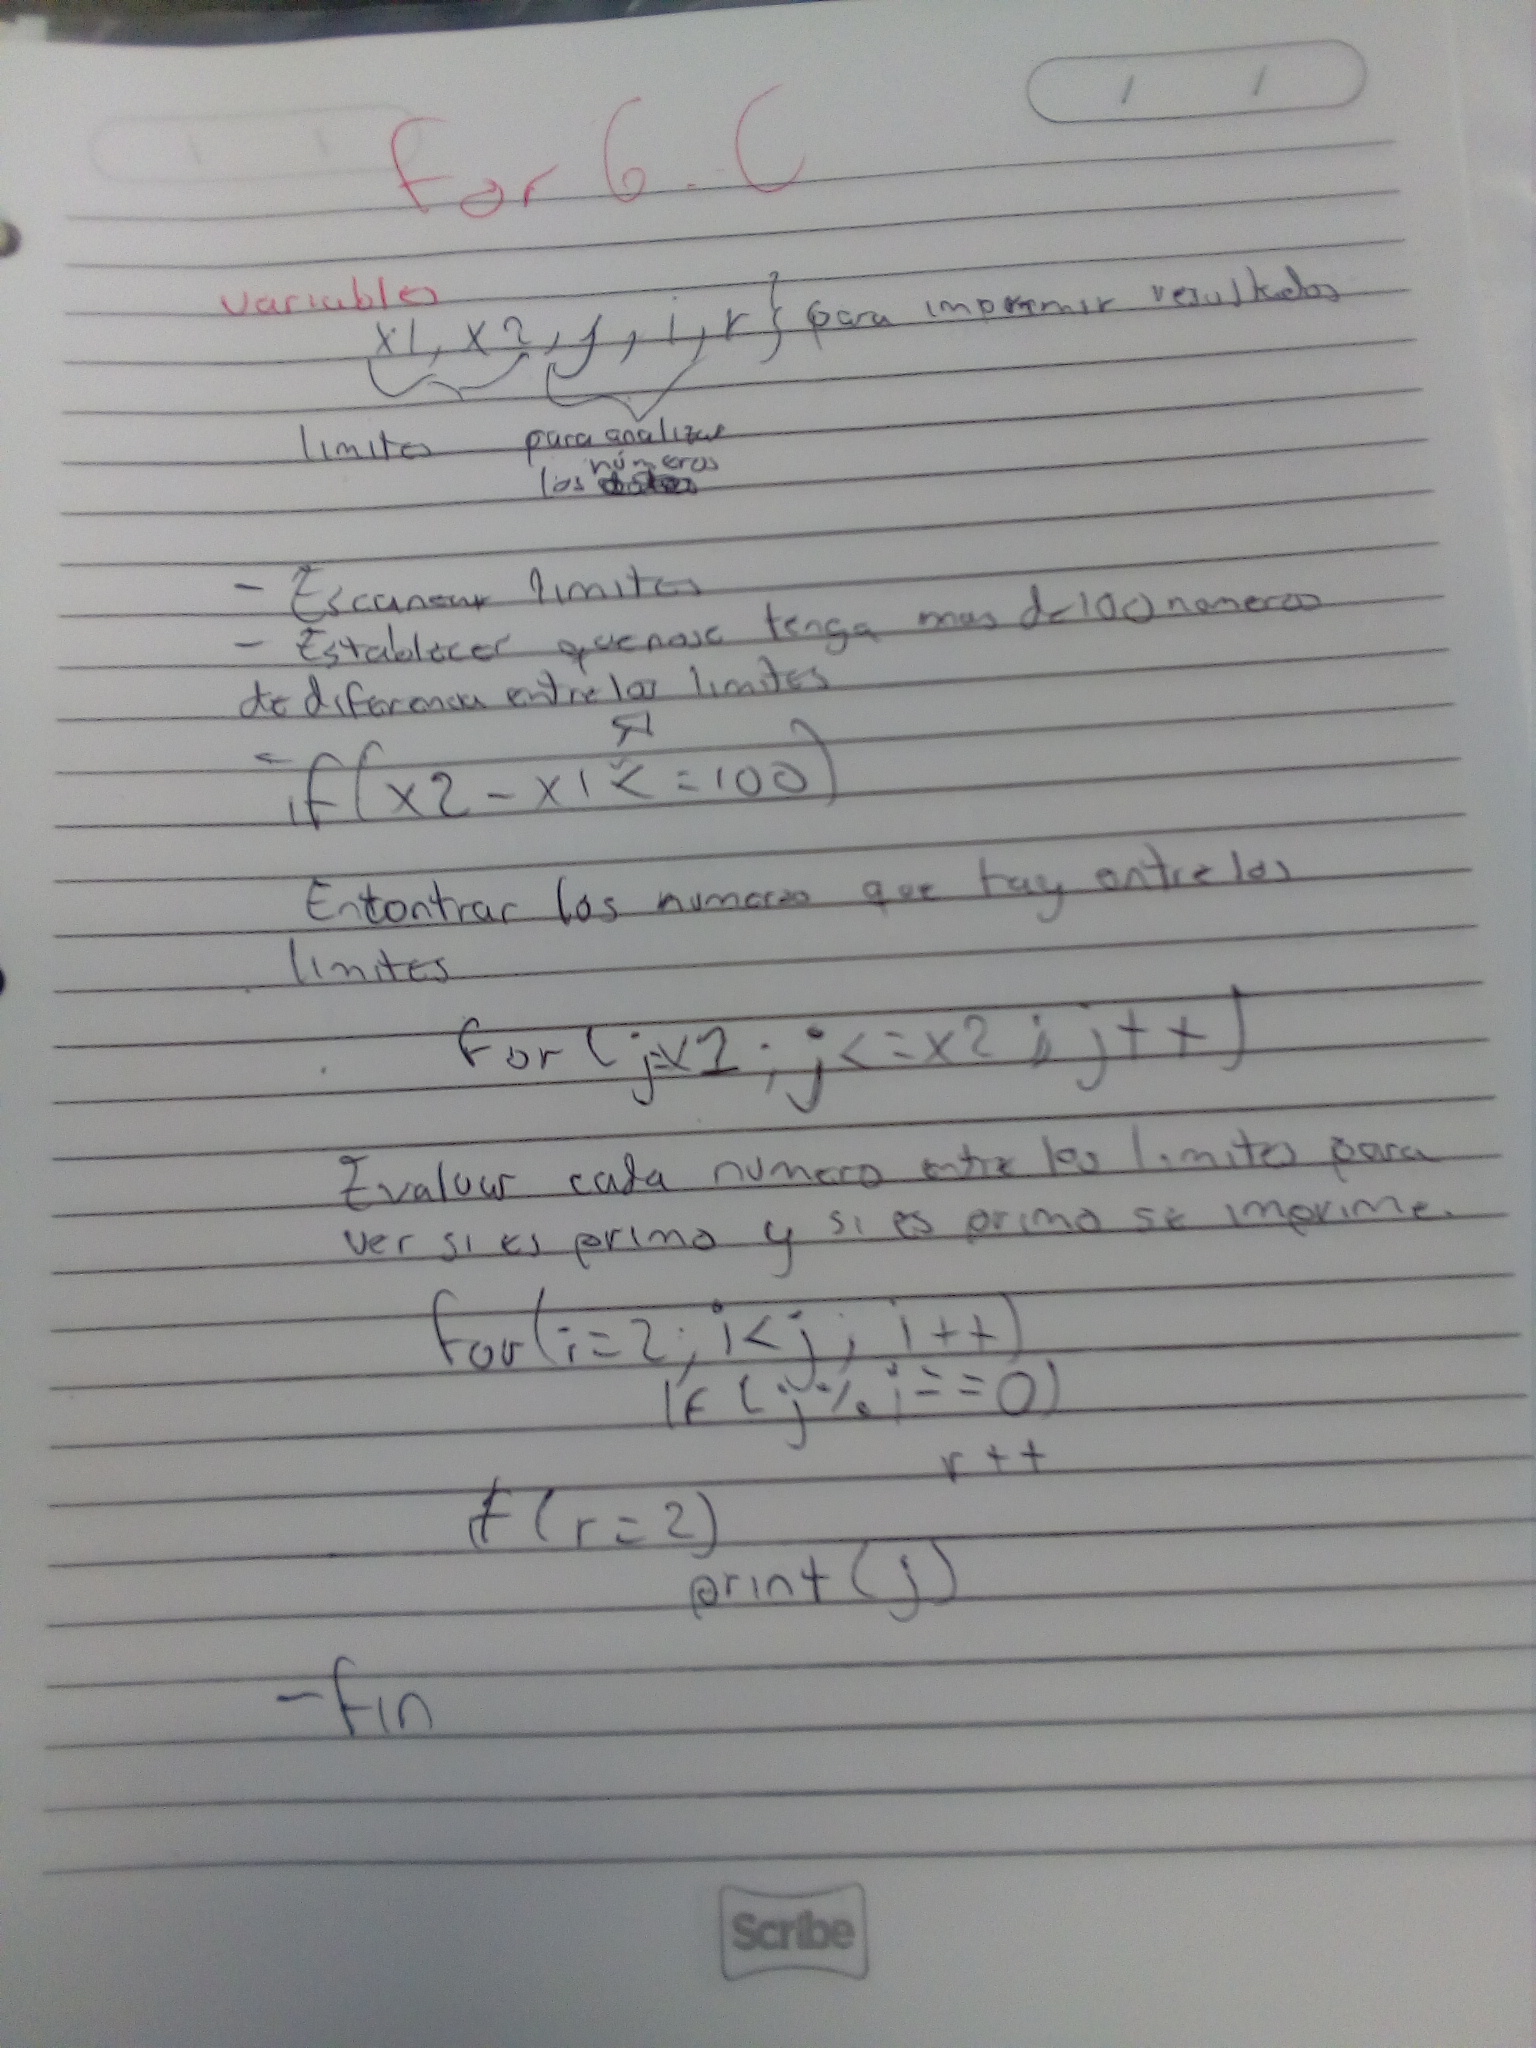 For 6.C
variables
x1, x2, j, i, r } para imprimir resultados
limites para analizar
números
los
- Escanear limites
- Establecer que no se tenga mas de 100 numeros
de diferencia entre los limites
- if(x2-x1<=100)
Entontrar los numeros que hay entre los
limites
for(j=x1; j<=x2; j++)
Evaluar cada numero entre los limites para
ver si es primo y si es primo se imprime.
for(i=2; i<j; i++)
if(j%i==0)
r++
if(r=2)
print(j)
- Fin
Scribe